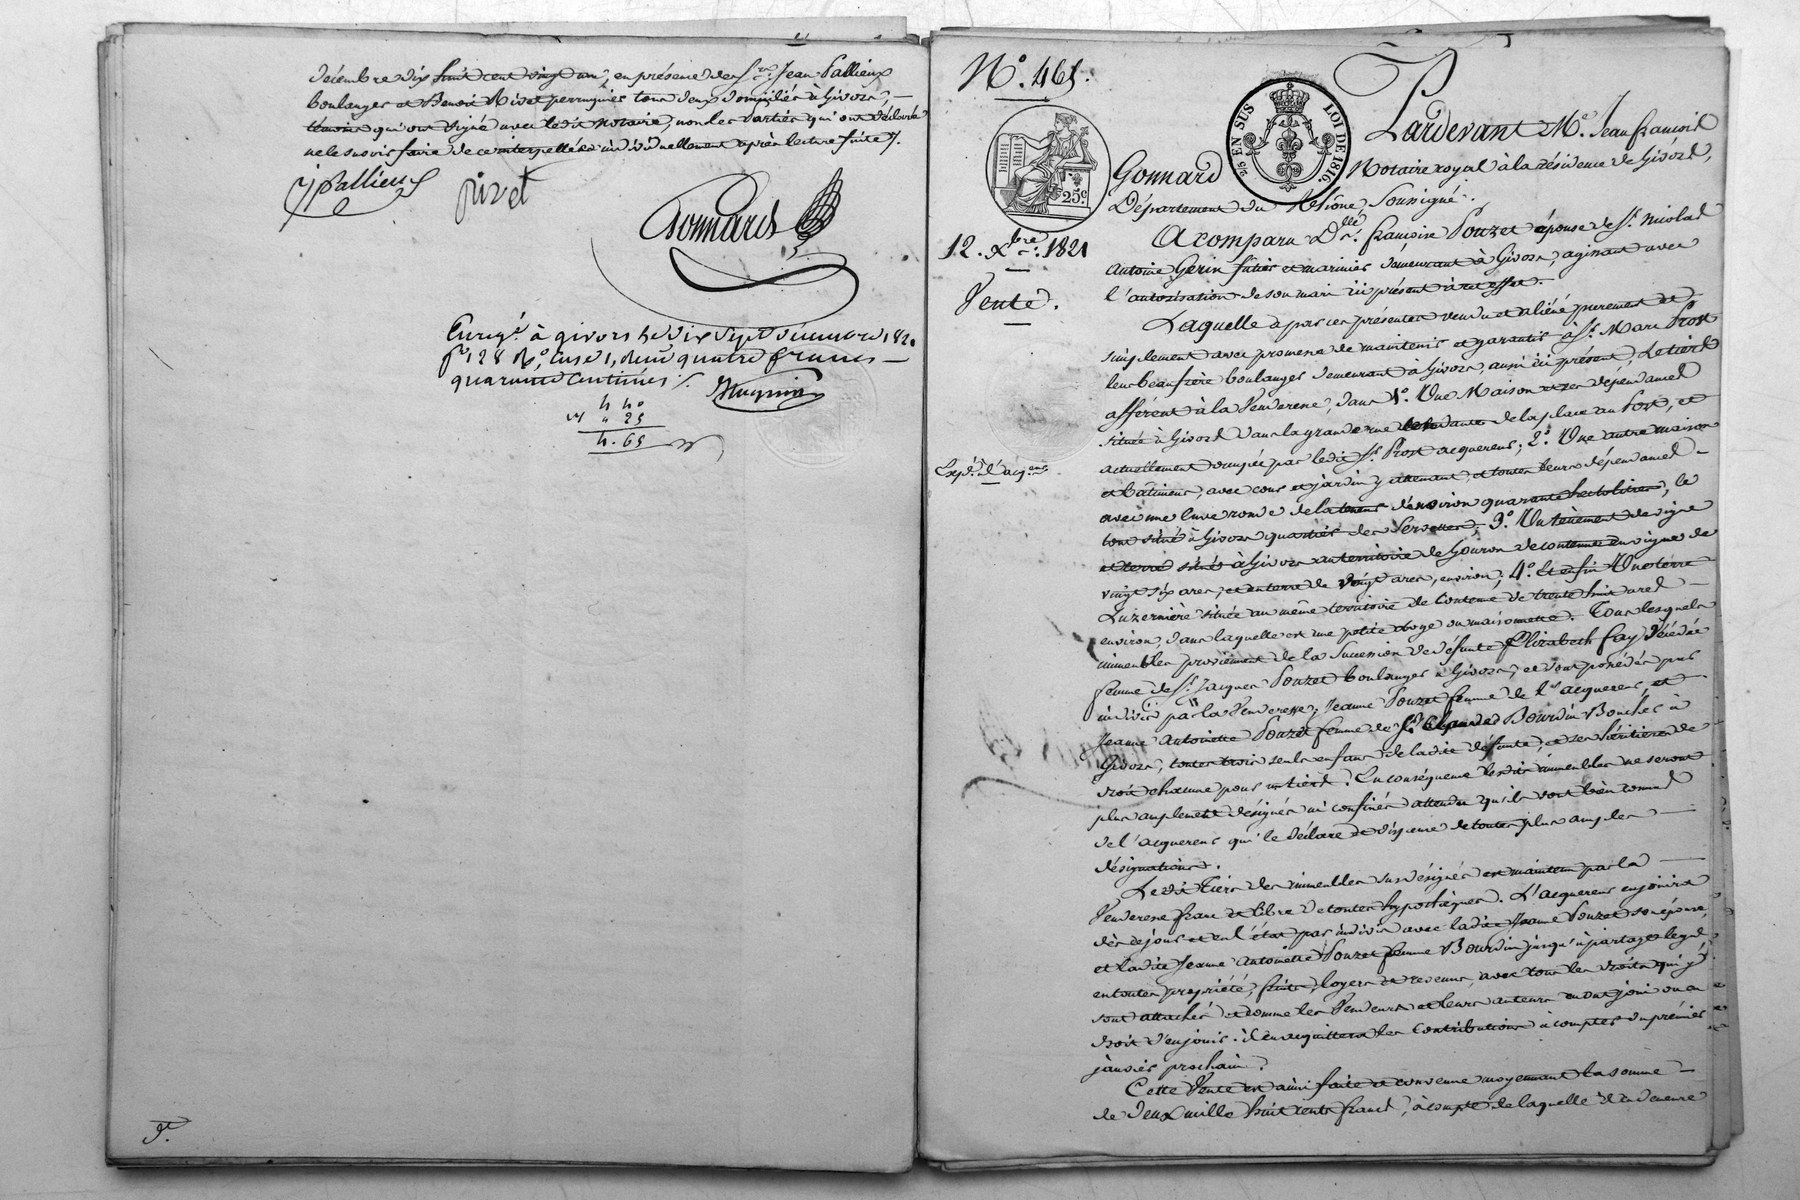 décembre dix huit cent vingt un, en présence des Srs. Jean Pallieux
boulanger et Benoit Rivet perruquier tous deux domiciliés à Givors
témoins qui ont signé avec ledit notaire, non les parties qui ont déclaré
ne le savoir faire de ce interpellés individuellement après lecture faite /.
jpallieux
rivet
Gonnard
Enregé à givors le dix sept décembre 1821
fo 128 Ro, Case 1, reçu quatre francs
quarante centimes /.
4 40
" 25
4. 65
No. 465.
12. Xbre. 1821
Vente.
Expé. à l'acqeur
25c
25 EN SUS
LOI DE 1816.
Pardevant Me. Jean françois
Gonnard Notaire royal à la résidence de Givors,
Département du Rhône soussigné.
A comparu Dlle. françoise Pouzet épouse de Sr. Nicolas
Antoine Gerin fûtier et marinier demeurant à Givors, agissant avec
l'autorisation de son mari ici présent à cet effet.
Laquelle a par ces présentes vendu et aliéné purement et
simplement avec promesse de maintenir et garantir à Sr. Marc Prost
leur beaufrère boulanger demeurant à Givors, aussi ici présent, Le tiers
afférent à la Venderesse, dans 1o. Une Maison et ses dépendances
située à Givors dans la grande rue de la place au Port, et
actuellement occupée par ledit Sr. Prost acquereur; 2o. Une autre maison
et bâtiment, avec cour et jardin y attenant, et toutes leurs dépendances
avec une cuve ronde de la teneur d'environ quarante hectolitres, le
tout situé à Givors quartier des ; 3o. Un tènement de vigne
et terre situé à Givors au territoire de Gouron de contenue en vigne de
vingt six ares, et en terre de vingt ares, environ; 4o. Et enfin Une terre
Luzernière située au même territoire de Contenue de trente huit ares
environ, dans laquelle est une petite loge ou maisonnette. Tous lesquels
immeubles proviennent de la Succession de défunte Elizabeth fay, décédée
femme de Sr. Jacques Pouzet boulanger à Givors, et sont possédés par
indivis par la Venderesse, Jeanne Pouzet femme de l'acquereur, et
Jeanne Antoinette Pouzet femme de Sr. Claude Bourdin Boucher à
Givors, toutes trois seuls enfans de ladite défunte, et ses héritières de
droit chacune pour un tiers. En conséquence lesdits immeubles ne seront
plus amplement désignés ni confinés attendu qu'ils sont bien connus
de l'acquereur qui le déclare et dispense de toutes plus amples
désignations.
Ledit Tiers des immeubles susdésignés est maintenu par la
Venderesse franc et libre de toutes hypothèques. L'acquereur en jouira
dès ce jour et en l'état par indivis avec ladite Jeanne Pouzet son épouse,
et Ladite Jeanne Antoinette Pouzet femme Bourdin jusqu'à partage legal
en toutes propriété, fruits, loyers et revenus, avec tous les droits qui y
sont attachés et comme les Vendeurs et leurs auteurs en ont joui ou eu
droit d'en jouir. il en acquittera les Contributions à compter du premier
janvier prochain.
Cette Vente est ainsi faite et convenue moyennant la somme
de deux mille huit cents francs, à compte de laquelle il en demeure